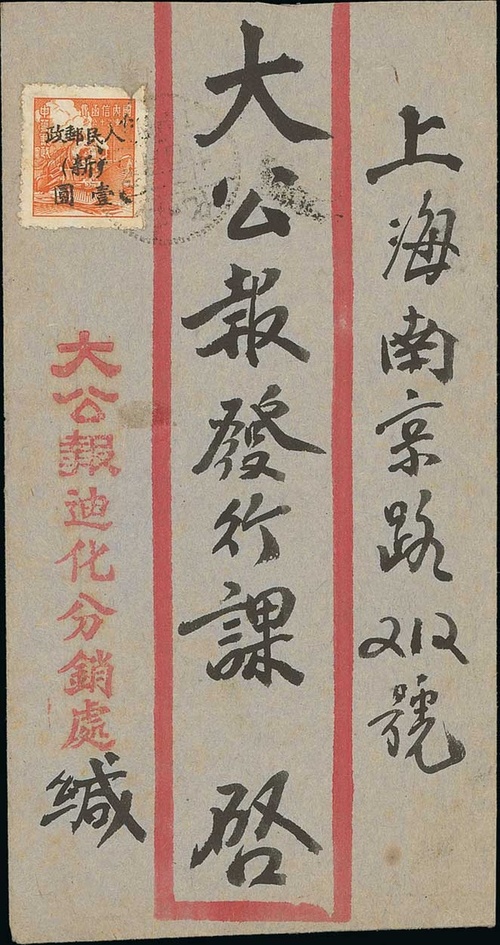 上海南京路212號
大公報發行課 啓
大公報迪化分銷處
緘
人民郵政
(新)
壹圓